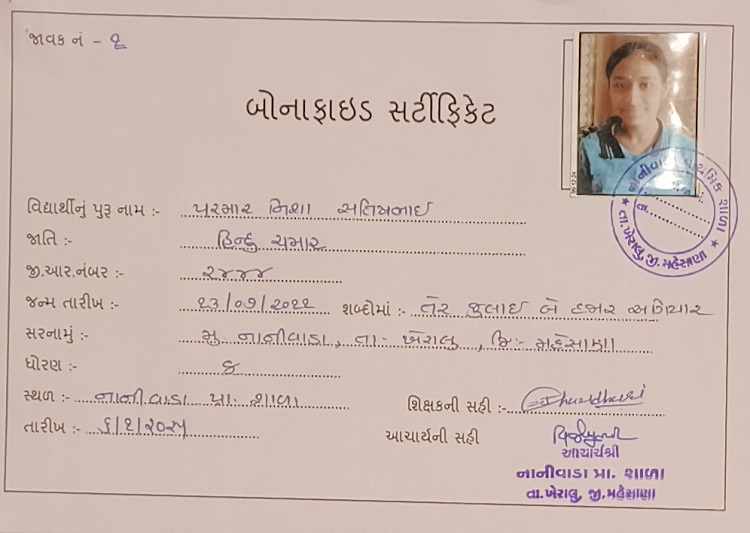 જાવક નં - ૧
બોનાફાઇડ સર્ટીફિકેટ
વિદ્યાર્થીનું પુરૂ નામ :- પરમાર નિશા સતિષભાઈ
જાતિ :- હિન્દુ ચમાર
જી.આર.નંબર :- ૨૪૪૪
જન્મ તારીખ :- ૧૩/૦૭/૨૦૧૧ શબ્દોમાં :- તેર જુલાઈ બે હજાર અગિયાર
સરનામું :- મુ નાનીવાડા, તા- ખેરાલુ, જિ:- મહેસાણા
ધોરણ :-
સ્થળ :- નાનીવાડા પ્રા. શાળા શિક્ષકની સહી :-
તારીખ :- ૬/૧/૨૦૨૫ આચાર્યની સહી
આચાર્યશ્રી
નાનીવાડા પ્રા. શાળા
તા.ખેરાલુ, જી.મહેસાણા
નાનીવાડા પ્રાથમિક શાળા
★ તા.ખેરાલુ, જી.મહેસાણા ★